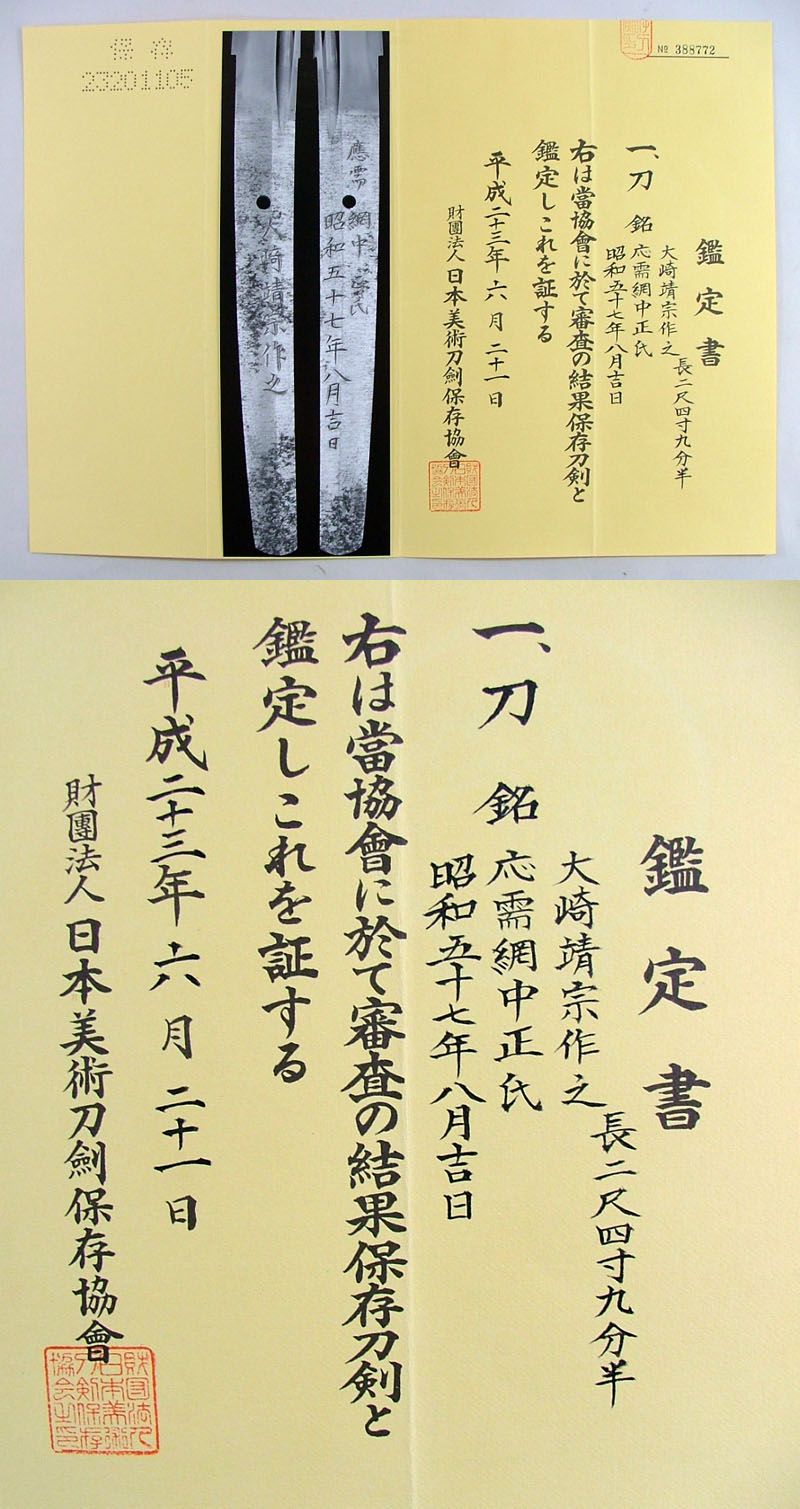 保存
23201105
應需 網中正氏
昭和五十七年八月吉日
大崎靖宗作之
№ 388772
鑑定書
一、刀 銘
大崎靖宗作之
応需網中正氏
昭和五十七年八月吉日
長二尺四寸九分半
右は當協會に於て審査の結果保存刀剣と
鑑定しこれを証する
平成二十三年六月二十一日
財團法人日本美術刀劍保存協會
鑑定書
一、刀 銘
大崎靖宗作之
応需網中正氏
昭和五十七年八月吉日
長二尺四寸九分半
右は當協會に於て審査の結果保存刀剣と
鑑定しこれを証する
平成二十三年六月二十一日
財團法人日本美術刀劍保存協會